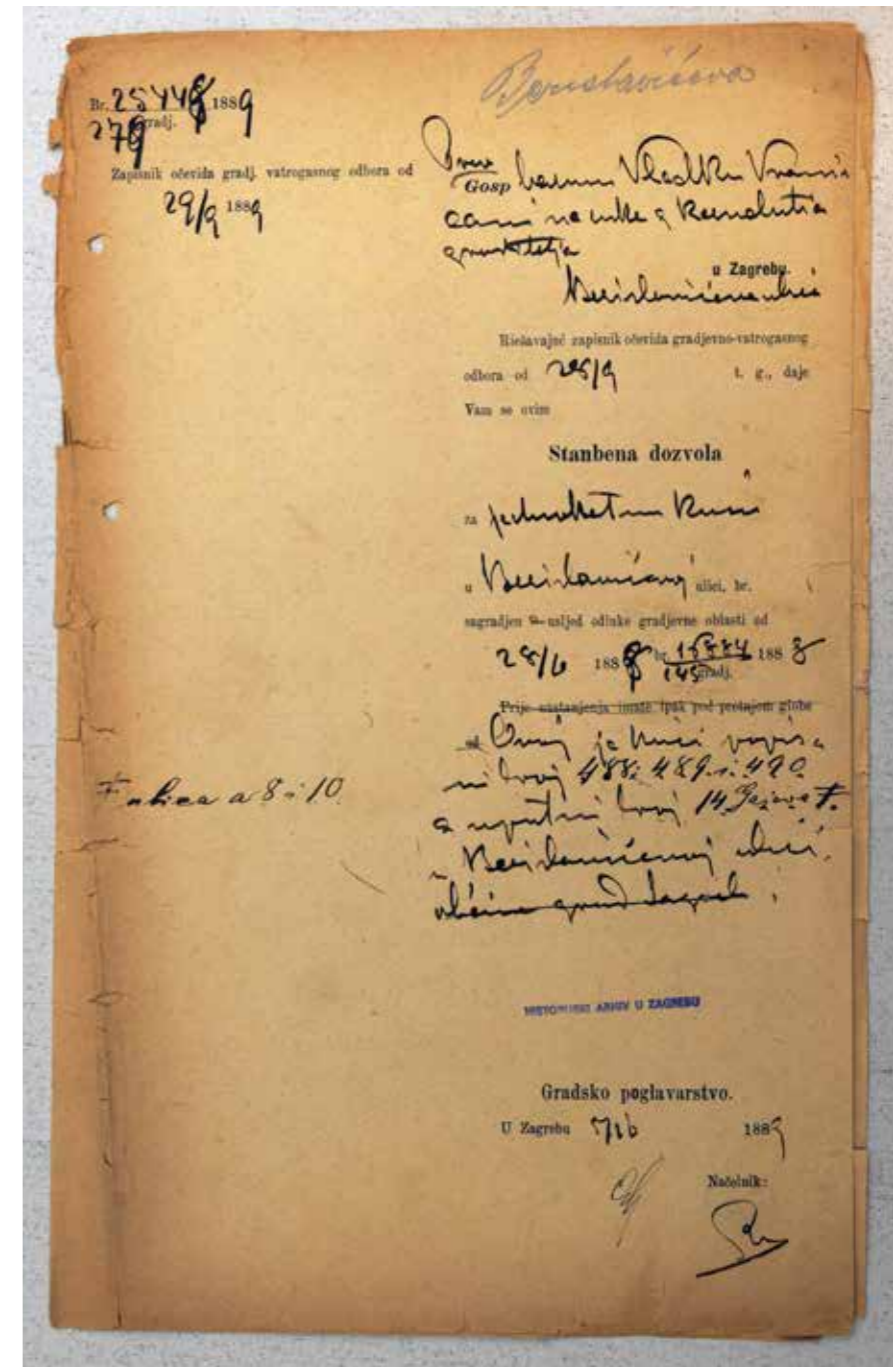 Berislavićeva
Br. 25448 1889
279 gradj.
Zapisnik očevida gradj. vatrogasnog odbora od
29/9 1889
Gosp barunu Vladku Vrani
cani na ruke g
u Zagrebu.
Berislavićeva ulica
Riešavajuć zapisnik očevida gradjevno-vatrogasnog
odbora od 29/9 t. g., daje
Vam se ovim
Stanbena dozvola
za jednokatnu kuću
u Berislavićevoj ulici, br.
sagradjen usljed odluke gradjevne oblasti od
28/6 1888 br. 1888
145 gradj.
Prije nastanjenja imate ipak pod prćtnjom globe
od Ovoj je kući popisa
ni broj 488i 489. i 490
a uputni broj 14 Gajeva F.
u Berislavićevoj ulici.
obćine grad Zagreb.
F ulica a 8 i 10.
HISTORIJSKI ARHIV U ZAGREBU
Gradsko poglavarstvo.
U Zagrebu 1889
Načelnik: